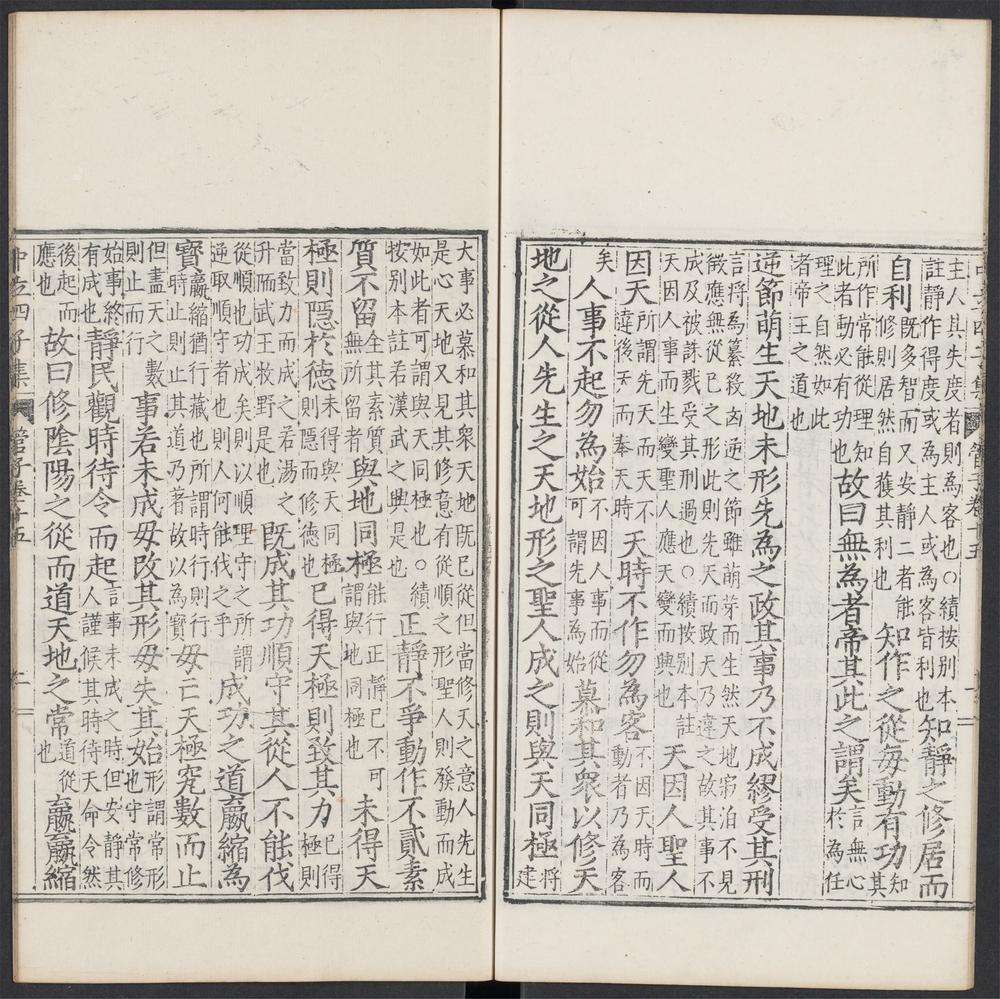 主人其失度者則為客也○續按别本
註靜作得度或為主人或為客皆利也
知靜之修居而
自利
既多智而又安靜二者能
修則居然自獲其利也
知作之從每動有功
知
其
所作常能從理知
此者動必有功也
故曰無為者帝其此之謂矣
言無心
於為任
理之自然如此
者帝王之道也
逆節萌生天地未形先為之政其事乃不成繆受其刑
言將為纂殺凶逆之節雖萌芽而生然天地寂泊不見
徵應無從已之形此則先天而政天乃違之故其事不
成及被誅戮受其刑過也○續按别本註
天因人事而生變聖人應天變而興也
天因人聖人
因天
所謂先天而天不
違後天而奉天時
天時不作勿為客
不因天時而
動者乃為客
矣
人事不起勿為始
不因人事而從
可謂先事為始
慕和其衆以修天
地之從人先生之天地形之聖人成之則與天同極
將
建
大事必慕和其衆天地既已從但當修天之意人先生
是心天地又見其修意有從順之形聖人則發動而成
如此者可謂與天同極也○續
按别本註若漢武之興是也
正靜不爭動作不貳素
質不留
全其素質
無所留者
與地同極
能行正靜已不可
謂與地同極也
未得天
極則隱於德
未得與天同極
則隱而修德也
已得天極則致其力
已得
極則
當致力而成之若湯之
升陑武王牧野是也
既成其功順守其從人不能伐
從順也功成矣則以順理守之所謂
逆取順守者也則人何能伐之乎
成功之道嬴縮為
寳
嬴縮猶行藏也所謂時行則行
時止則止其道乃者故以為寳
毋亡天極究數而止
但盡天之數
則止而行
事若未成毋改其形毋失其始
形謂常形
也守常修
始事終
有成也
靜民觀時待令而起
言事未成之時但安靜其
人謹候其時待天命令然
後起而
應也
故曰修陰陽之從而道天地之常
道從
也
嬴嬴縮
中立四子集
管子卷十五